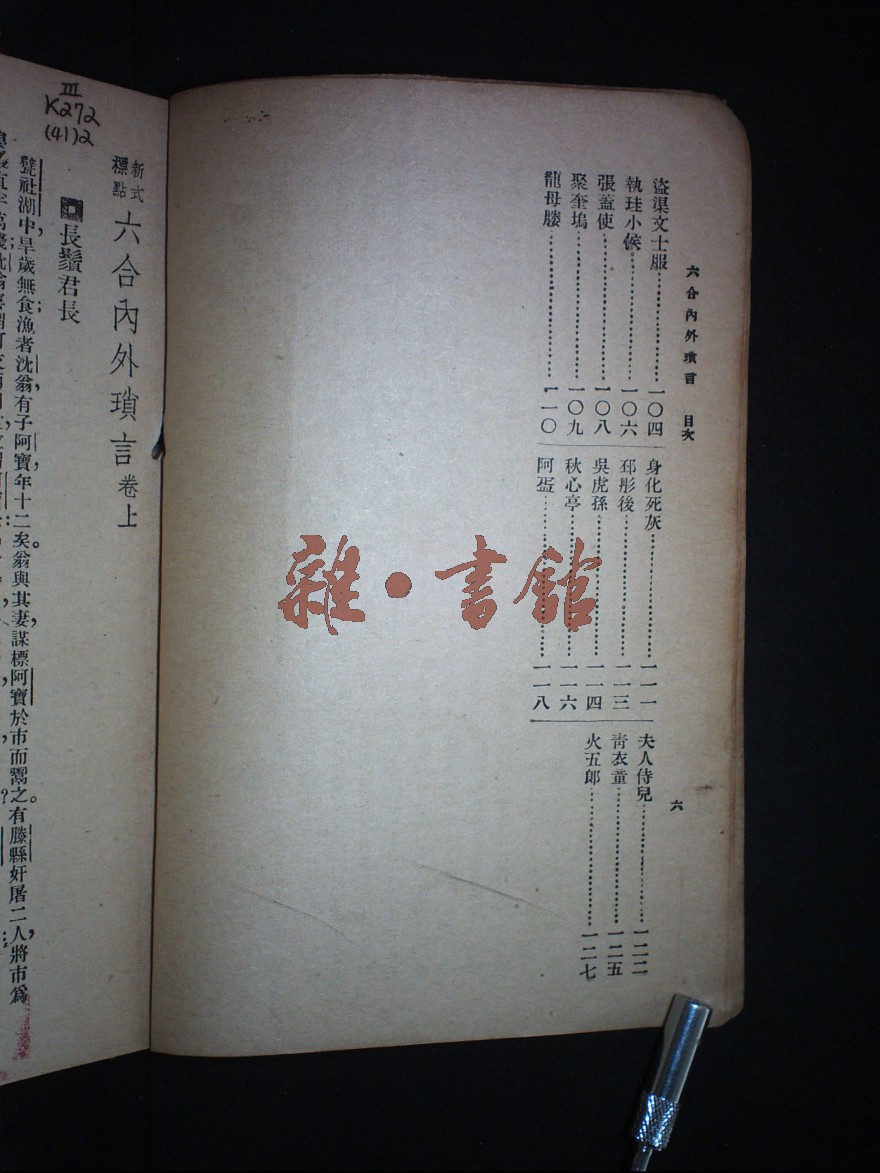 六合內外瑣言 目次
六
盜渠文士服……一〇四
執珪小侯……一〇六
張蓋使……一〇八
聚奎塢……一〇九
龍母塍……一一〇
身化死灰……一一一
邳彤後……一一三
吳虎孫……一一四
秋心亭……一一六
阿𧉟……一一八
夫人侍兒……一二二
青衣童……一二五
火五郎……一二七
雜·書館
III
K272
(41)2
新式標點 六合內外瑣言 卷上
長鬚君長
甓社湖中,旱歲無食;漁者沈翁,有子阿寶,年十二矣。翁與其妻,謀標阿寶於市而鬻之。有滕縣奸屠二人,將市爲